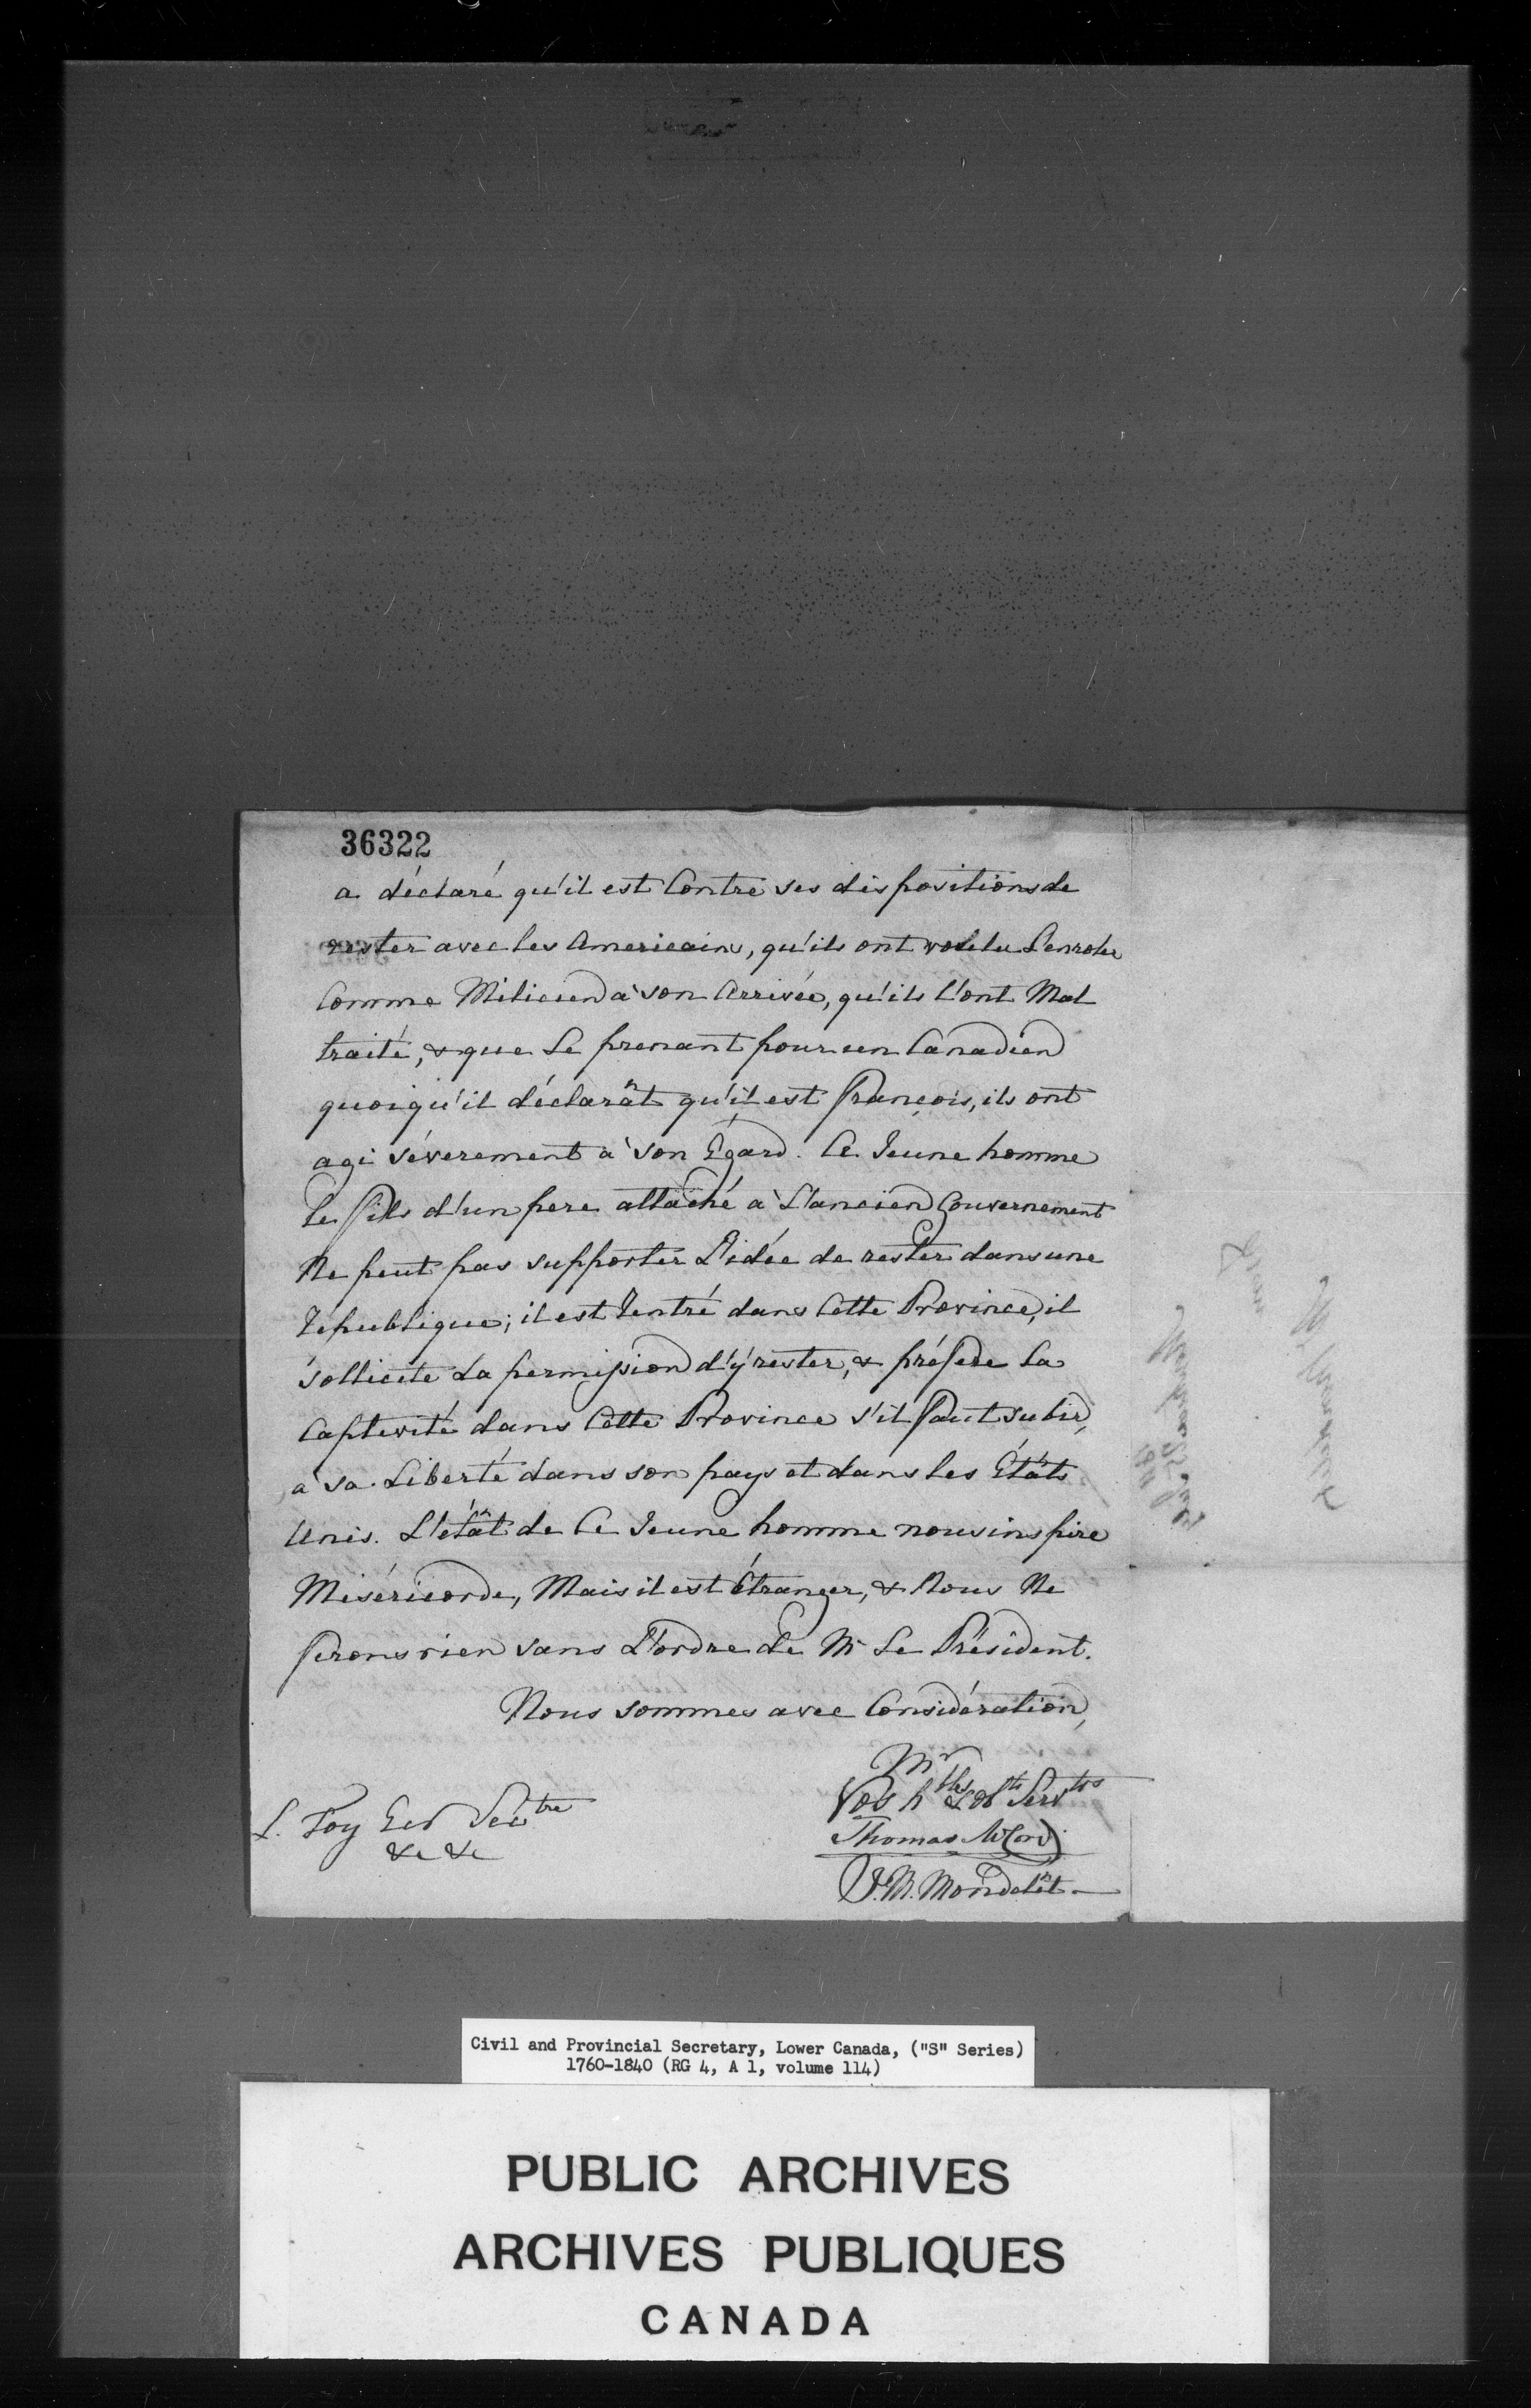 36322
a déclaré qu'il est Contre ses dispositions de
rester avec les Americains, qu'ils ont voulu L'enroler
Comme Milicien à son Arrivée, qu'ils l'ont Mal
traité, & que Le prenant pour un Canadien
quoiqu'il déclarât qu'il est François, ils ont
agi séverement à son Égard. Ce Jeune homme
le fils d'un pere attaché à L'ancien Gouvernement
Ne peut pas supporter L'idée de rester dans une
République; il est Rentré dans Cette Province, il
sollicite La permission d'y rester, & préfere La
Captivité dans Cette Province s'il Faut subir,
à sa Liberté dans son pays et dans les États
Unis. L'étât de Ce Jeune homme nous inspire
Miséricorde, Mais il est Étranger, & Nous Ne
ferons rien sans L'ordre de Mr Le Président.
Nous sommes avec Considération,
Mr
Vos hbles & obts Servts
L. Foy Ecr Secrétre
Thomas McCord
&c &c
J.M. Mondelêt
Civil and Provincial Secretary, Lower Canada, ("S" Series)
1760-1840 (RG 4, A 1, volume 114)
PUBLIC ARCHIVES
ARCHIVES PUBLIQUES
CANADA